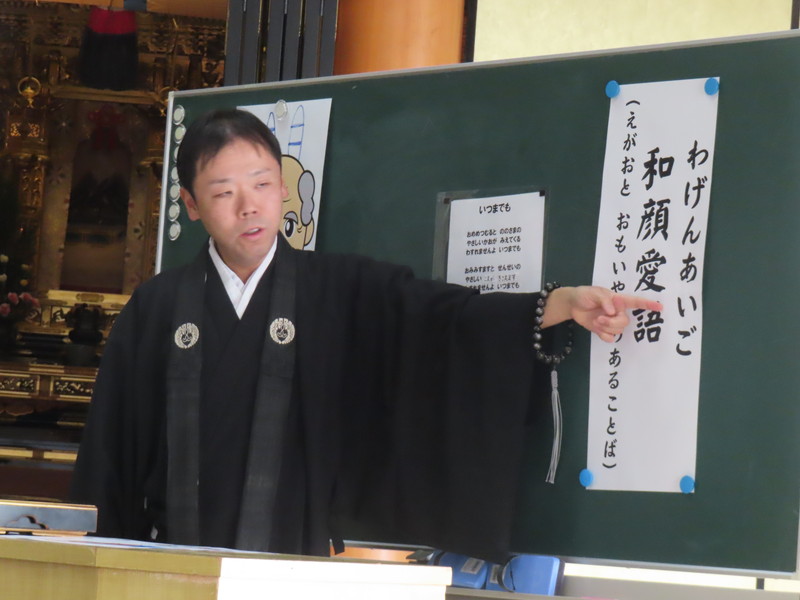 わげんあいご
和顔愛語
(えがおと おもいや りあることば)
いつまでも
おめめつむると ののさまの
やさしいかおが みえてくる
わすれませんよ いつまでも
おみみすますと せんせいの
やさしい こえます
れませんよ いつまでも